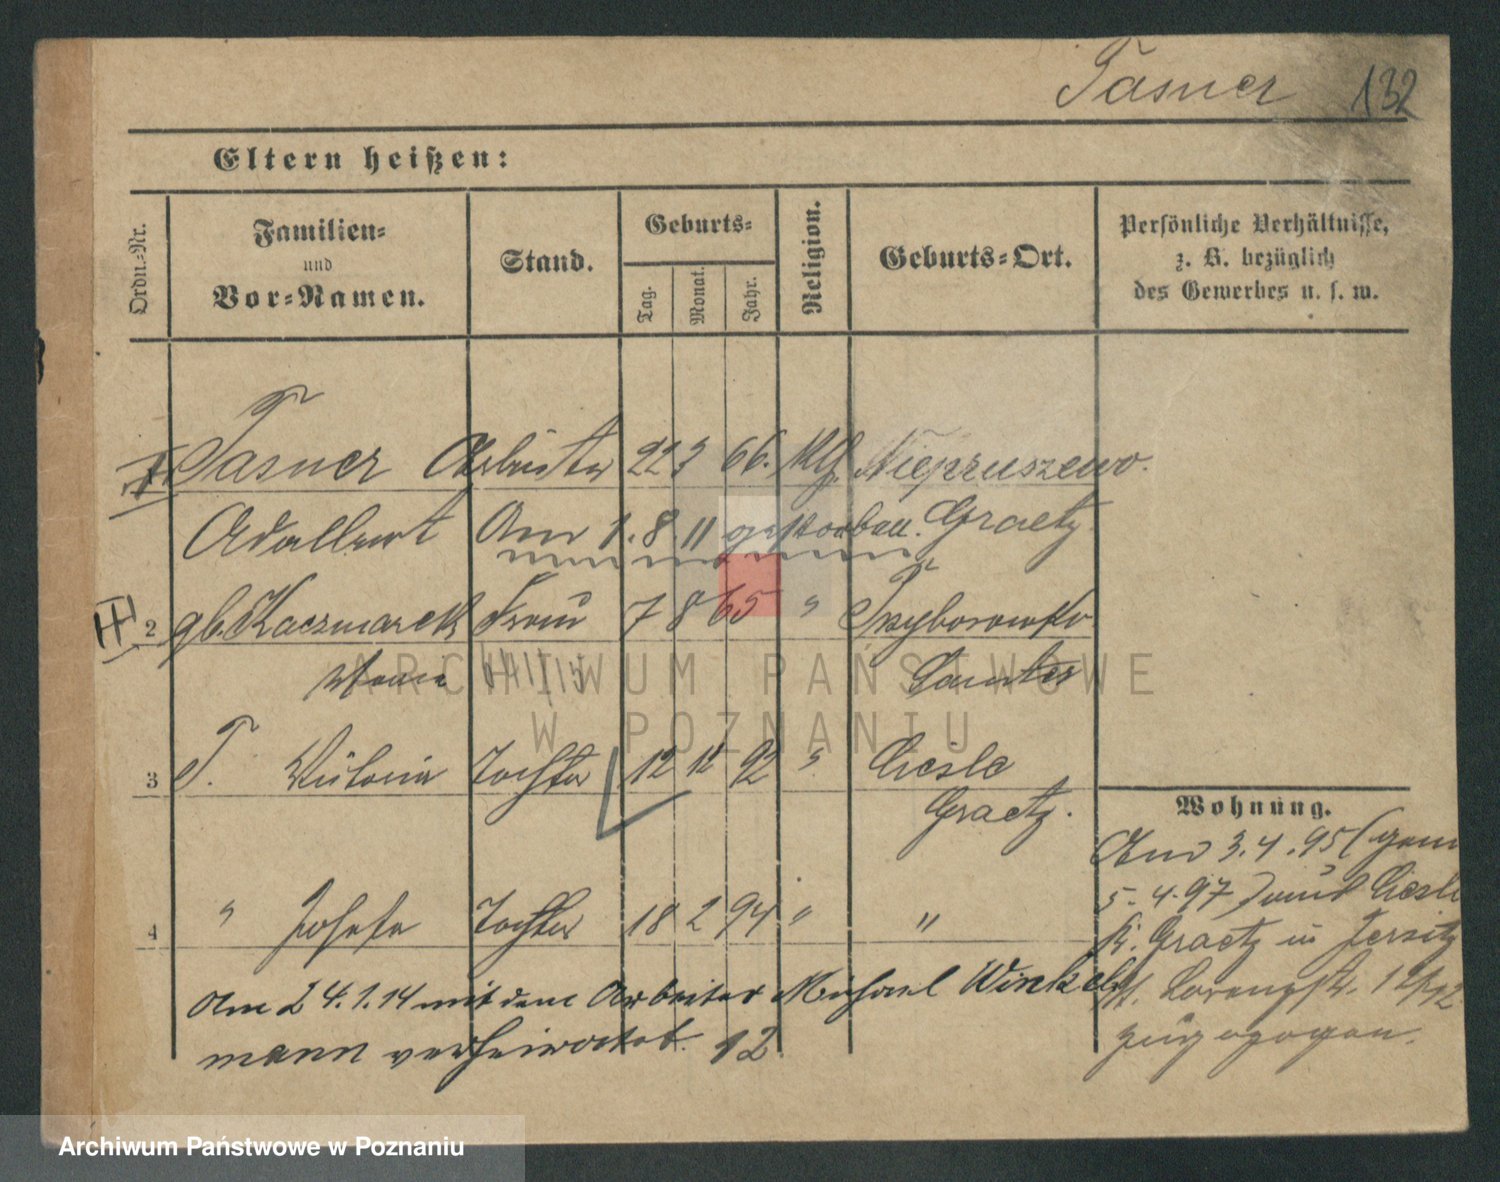 Tasner 132
Eltern heißen:
Ordn.-Nr.
Familien-
und
Vor-Namen.
Stand.
Geburts-
Tag.
Monat.
Jahr.
Religion.
Geburts-Ort.
Persönliche Verhältnisse,
z. B. bezüglich
des Gewerbes u. s. w.
Tasner Arbeiter 22 3 66. Niepruszewo.
Adalbert Am 1. 8. 11 gestorben. Graetz
2 gb. Kaczmarek Frau 7 8 65 "
Samter
3 T. Victoria Tochter 12 12 92 " Ciesle
Graetz.
4 " Josefa Tochter 18 2 94 " "
Am 24.1.14 mit dem Arbeiter Michael Winkel
mann verheiratet. 12
Wohnung.
Am 3.4.95 (gem
5.4.97) aus Ciesle
K. Graetz in Jersitz
zugezogen.
ARCHIWUM PAŃSTWOWE
W POZNANIU
Archiwum Państwowe w Poznaniu